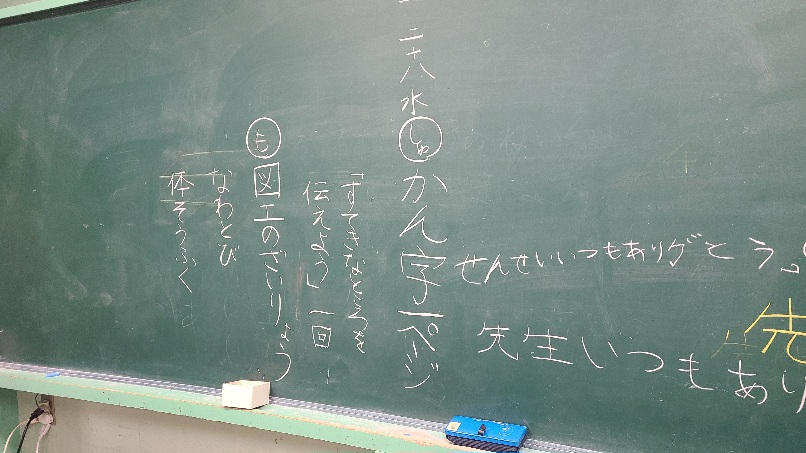 二十八 水 しゅ かん字一ページ
「すてきなところを
伝えよう」一回
も 図工のざいりょう
なわとび
体そうふく
せんせいいつもありがとう。
先生いつもあり
先